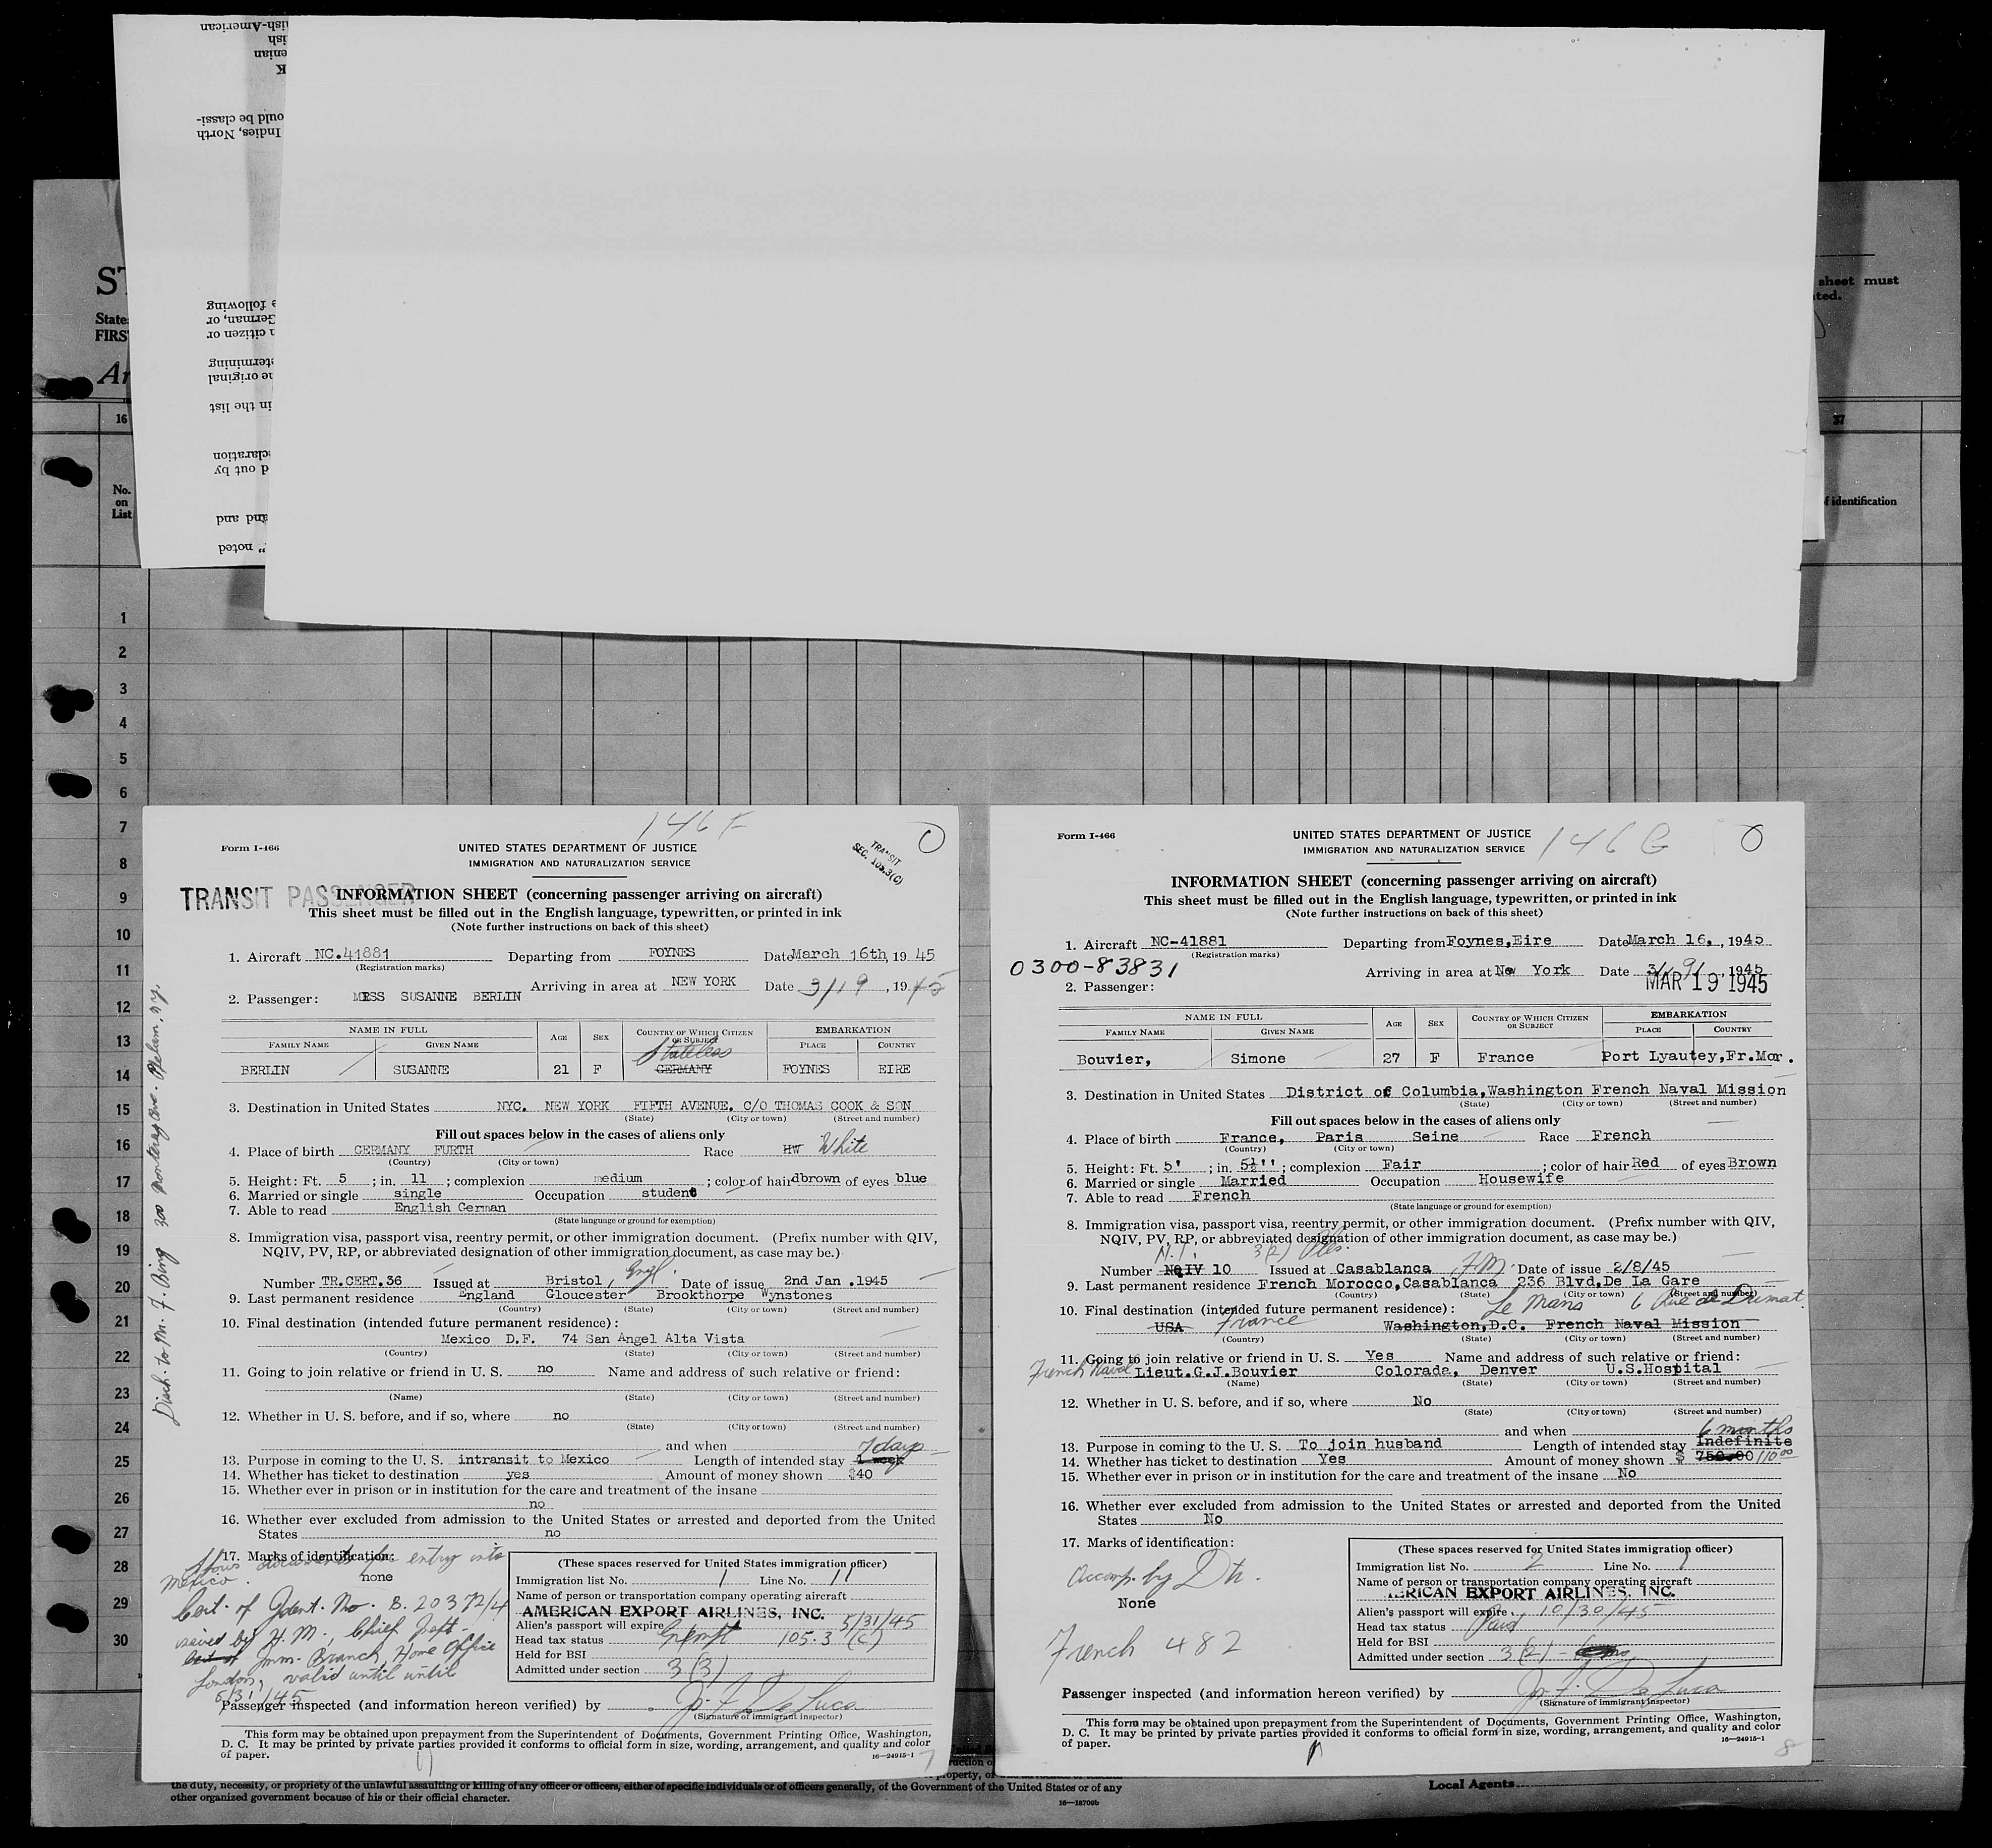 ish-American
ish
enian
K
ould be classi-
Indies, North
e following
German, or
n citizen or
etermining
ne original
in the list
eclaration
d out by
and and
" noted
ST
State
FIRS
Ar
sheet must
ted.
16
37
No.
on
List
f identification
1
2
3
4
5
6
7
8
9
10
11
12
13
14
15
16
17
18
19
20
21
22
23
24
25
26
27
28
29
30
146 F
Form I-466
UNITED STATES DEPARTMENT OF JUSTICE
IMMIGRATION AND NATURALIZATION SERVICE
TRANSIT
SEC. 105.3(C)
TRANSIT PASSENGER
INFORMATION SHEET (concerning passenger arriving on aircraft)
This sheet must be filled out in the English language, typewritten, or printed in ink
(Note further instructions on back of this sheet)
1. Aircraft NC.41881 Departing from FOYNES Date March 16th, 19 45
(Registration marks)
Arriving in area at NEW YORK Date 3/19, 1945
2. Passenger: MISS SUSANNE BERLIN
NAME IN FULL AGE SEX COUNTRY OF WHICH CITIZEN OR SUBJECT EMBARKATION
FAMILY NAME GIVEN NAME PLACE COUNTRY
Stateless
BERLIN SUSANNE 21 F GERMANY FOYNES EIRE
3. Destination in United States NYC. NEW YORK FIFTH AVENUE, C/O THOMAS COOK & SON
(State) (City or town) (Street and number)
Fill out spaces below in the cases of aliens only
4. Place of birth GERMANY FURTH Race HW White
(Country) (City or town)
5. Height: Ft. 5 ; in. 11 ; complexion medium ; color of hair dbrown of eyes blue
6. Married or single single Occupation student
7. Able to read English German
(State language or ground for exemption)
8. Immigration visa, passport visa, reentry permit, or other immigration document. (Prefix number with QIV,
NQIV, PV, RP, or abbreviated designation of other immigration document, as case may be.)
Number TR.CERT.36 Issued at Bristol, Engl. Date of issue 2nd Jan .1945
9. Last permanent residence England Gloucester Brookthorpe Wynstones
(Country) (State) (City or town) (Street and number)
10. Final destination (intended future permanent residence):
Mexico D.F. 74 San Angel Alta Vista
(Country) (State) (City or town) (Street and number)
11. Going to join relative or friend in U. S. no Name and address of such relative or friend:
(Name) (State) (City or town) (Street and number)
12. Whether in U. S. before, and if so, where no
(State) (City or town) (Street and number)
and when
7 days
13. Purpose in coming to the U. S. intransit to Mexico Length of intended stay 1 week
14. Whether has ticket to destination yes Amount of money shown $40
15. Whether ever in prison or in institution for the care and treatment of the insane
no
16. Whether ever excluded from admission to the United States or arrested and deported from the United
States no
17. Marks of identification:
none
documents for entry into
Mexico.
Cert. of Ident. No. B. 20372/4
issued by H. M., Chief Inspt.
Imm. Branch, Home Office
London, valid until until
5/31/45
(These spaces reserved for United States immigration officer)
Immigration list No. 1 Line No. 11
Name of person or transportation company operating aircraft
AMERICAN EXPORT AIRLINES, INC.
Alien's passport will expire 5/31/45
Head tax status Exempt 105.3 (c)
Held for BSI
Admitted under section 3(3)
Passenger inspected (and information hereon verified) by J. F. De Luca
(Signature of immigrant inspector)
This form may be obtained upon prepayment from the Superintendent of Documents, Government Printing Office, Washington,
D. C. It may be printed by private parties provided it conforms to official form in size, wording, arrangement, and quality and color
of paper.
16—24915-1
7
Disch. to Mr. F. Bing 300 Monterey Ave. Pelham, N.Y.
146 G
Form I-466
UNITED STATES DEPARTMENT OF JUSTICE
IMMIGRATION AND NATURALIZATION SERVICE
INFORMATION SHEET (concerning passenger arriving on aircraft)
This sheet must be filled out in the English language, typewritten, or printed in ink
(Note further instructions on back of this sheet)
1. Aircraft NC-41881 Departing from Foynes,Eire Date March 16, , 1945
(Registration marks)
0300-83831
Arriving in area at New York Date 3/19/ , 1945
MAR 19 1945
2. Passenger:
NAME IN FULL AGE SEX COUNTRY OF WHICH CITIZEN OR SUBJECT EMBARKATION
FAMILY NAME GIVEN NAME PLACE COUNTRY
Bouvier, Simone 27 F France Port Lyautey,Fr.Mor.
3. Destination in United States District of Columbia,Washington French Naval Mission
(State) (City or town) (Street and number)
Fill out spaces below in the cases of aliens only
4. Place of birth France, Paris Seine Race French
(Country) (City or town)
5. Height: Ft. 5' ; in. 5½'' ; complexion Fair ; color of hair Red of eyes Brown
6. Married or single Married Occupation Housewife
7. Able to read French
(State language or ground for exemption)
8. Immigration visa, passport visa, reentry permit, or other immigration document. (Prefix number with QIV,
NQIV, PV, RP, or abbreviated designation of other immigration document, as case may be.)
3(2)
Number NQIV 10 Issued at Casablanca F.M. Date of issue 2/8/45
9. Last permanent residence French Morocco,Casablanca 236 Blvd,De La Gare
(Country) (State) (City or town) (Street and number)
10. Final destination (intended future permanent residence): Le Mans 6 Rue de
USA France Washington,D.C. French Naval Mission
(Country) (State) (City or town) (Street and number)
11. Going to join relative or friend in U. S. Yes Name and address of such relative or friend:
French Naval Lieut.G.J.Bouvier Colorada, Denver U.S.Hospital
(Name) (State) (City or town) (Street and number)
12. Whether in U. S. before, and if so, where No
(State) (City or town) (Street and number)
and when
6 months
13. Purpose in coming to the U. S. To join husband Length of intended stay Indefinite
14. Whether has ticket to destination Yes Amount of money shown $ 750.00 110.00
15. Whether ever in prison or in institution for the care and treatment of the insane No
16. Whether ever excluded from admission to the United States or arrested and deported from the United
States No
17. Marks of identification:
Accomp. by Dtr.
None
French 482
(These spaces reserved for United States immigration officer)
Immigration list No. 2 Line No. 1
Name of person or transportation company operating aircraft
ERICAN EXPORT AIRLINES, INC.
Alien's passport will expire 10/30/45
Head tax status Paid
Held for BSI
Admitted under section 3(2) - 6 ms
Passenger inspected (and information hereon verified) by J. F. De Luca
(Signature of immigrant inspector)
This form may be obtained upon prepayment from the Superintendent of Documents, Government Printing Office, Washington,
D. C. It may be printed by private parties provided it conforms to official form in size, wording, arrangement, and quality and color
of paper.
16—24915-1
8
the duty, necessity, or propriety of the unlawful assaulting or killing of any officer or officers, either of specific individuals or of officers generally, of the Government of the United States or of any
other organized government because of his or their official character.
16—18709b
Local Agents